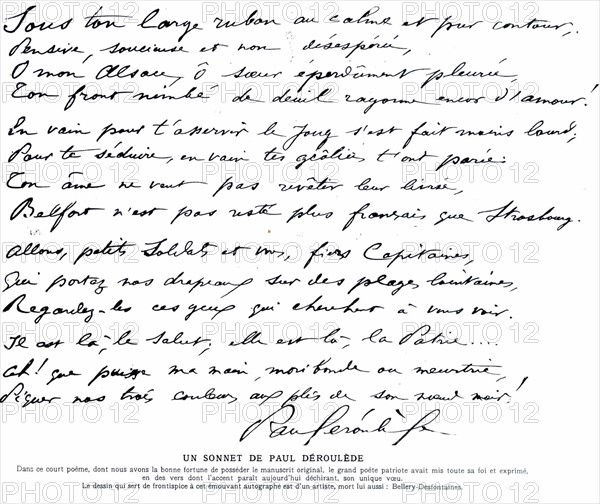 Sous ton large ruban au calme et pur contour,
Pensive, soucieuse et non désespérée,
O mon Alsace, ô sœur éperdûment pleurée,
Ton front nimbé de deuil rayonne encor d'amour!
En vain pour t'asservir le Joug s'est fait moins lourd;
Pour te séduire, en vain tes geôliers t'ont parée:
Ton âme ne veut pas revêtir leur livrée,
Belfort n'est pas resté plus français que Strasbourg.
Allons, petits Soldats et vous, fiers Capitaines,
Qui portez nos drapeaux sur des plages lointaines,
Regardez-les ces yeux qui cherchent à vous voir.
Il est là, le Salut; elle est là, la Patrie....
Ah! que puisse ma main, moribonde ou meurtrie,
Piquer nos trois couleurs aux plis de son nœud noir!
Paul Déroulède
UN SONNET DE PAUL DÉROULÈDE
Dans ce court poème, dont nous avons la bonne fortune de posséder le manuscrit original, le grand poète patriote avait mis toute sa foi et exprimé,
en des vers dont l'accent paraît aujourd'hui déchirant, son unique vœu.
Le dessin qui sert de frontispice à cet émouvant autographe est d'un artiste, mort lui aussi : Bellery-Desfontaines.